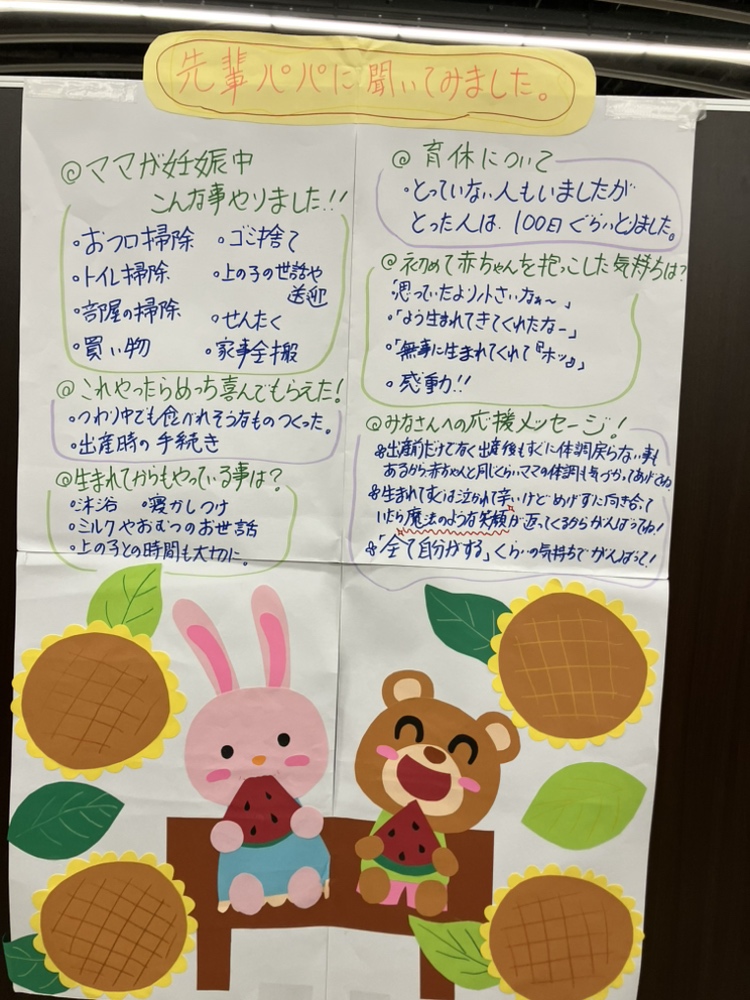 先輩パパに聞いてみました。
@ママが妊娠中
こんな事やりました!!
・おフロ掃除
・トイレ掃除
・部屋の掃除
・買い物
・ゴミ捨て
・上の子の世話や
送迎
・せんたく
・家事全搬
@これやったらめっちゃ喜んでもらえた!
・つわり中でも食べれそうなものつくった。
・出産時の手続き
@生まれてからもやっている事は?
・沐浴 ・寝かしつけ
・ミルクやおむつのお世話
・上の子との時間も大切に。
@育休について
・とっていない人もいましたが
とった人は、100日ぐらいとりました。
@初めて赤ちゃんを抱っこした気持ちは?
・「思っていたより小さいなぁ〜」
・「よう生まれてきてくれたなー」
・「無事に生まれてくれて『ホッ』」
・感動!!
@みなさんへの応援メッセージ!
出産前だけでなく出産後もすぐに体調戻らない事も
あるから赤ちゃんと同じくらいママの体調も気づかってあげてね
生まれてすぐは泣かれて辛いけどめげずに向き合って
いたら魔法のような笑顔が返ってくるからがんばってね!
「全て自分がする」くらいの気持ちでがんばって!